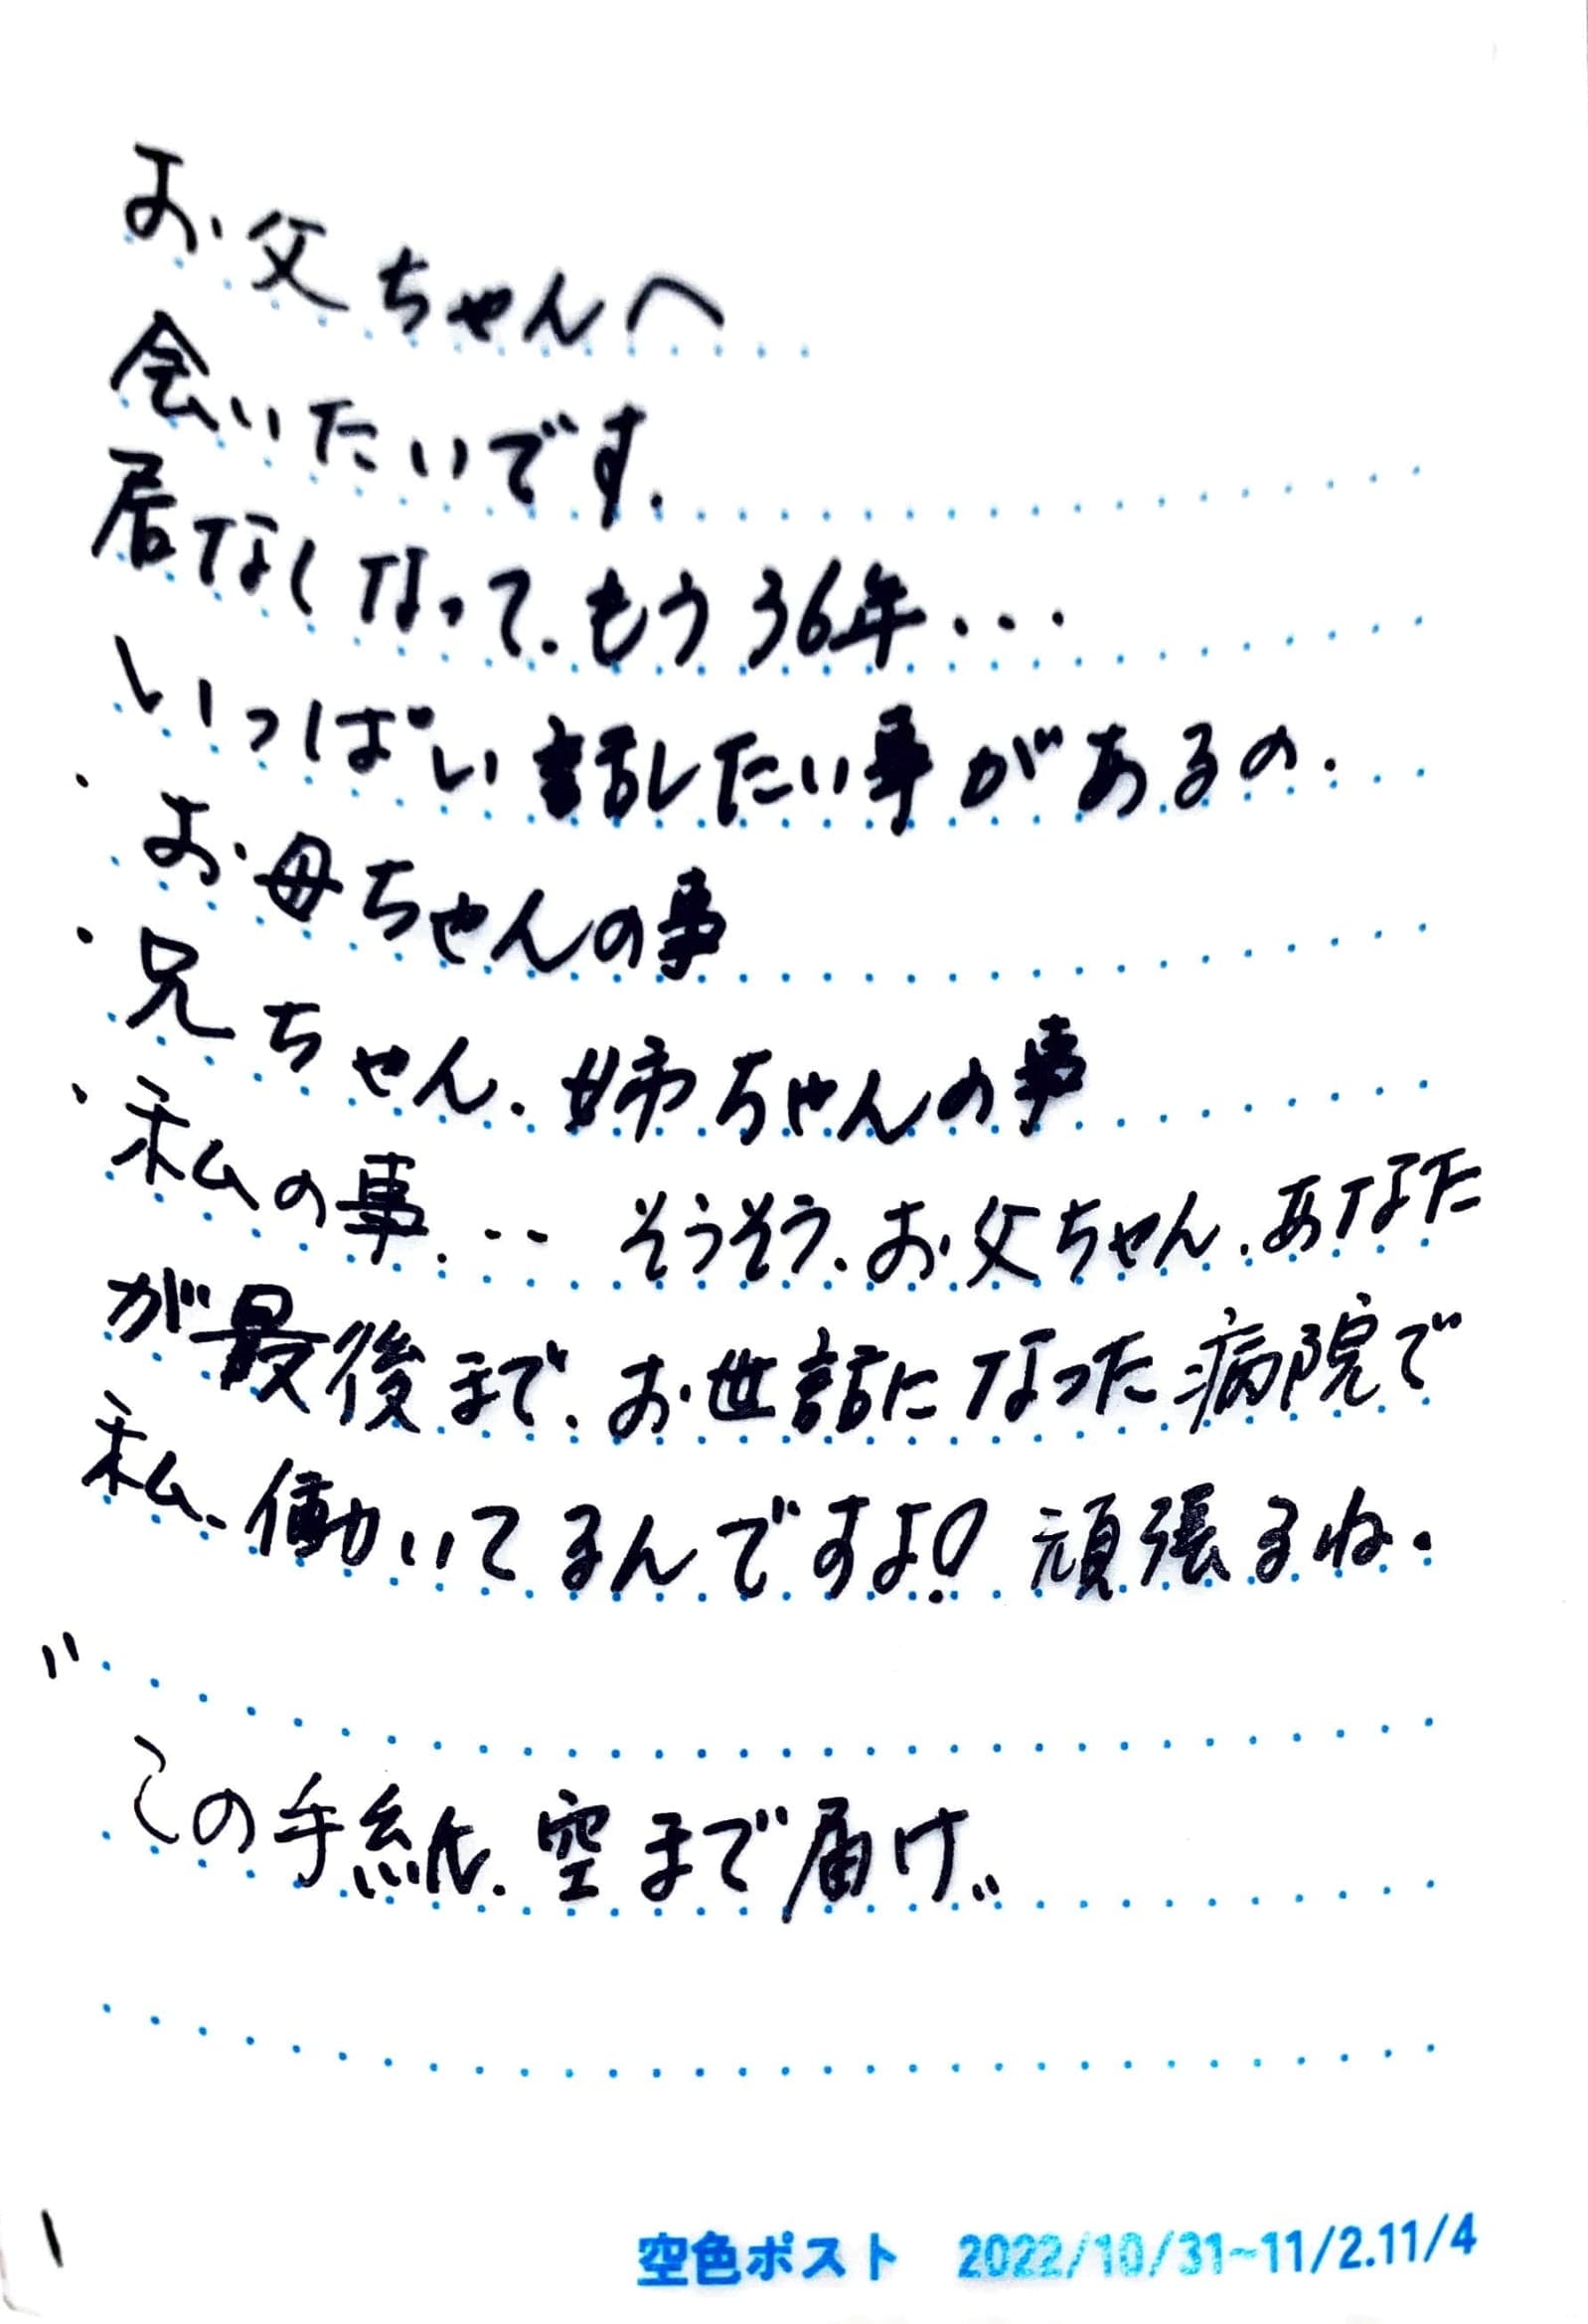 お父ちゃんへ
会いたいです.
居なくなって.もう36年...
いっぱい話したい事があるの.
・お母ちゃんの事
・兄ちゃん.姉ちゃんの事
・私の事... そうそう.お父ちゃん.あなた
が最後まで.お世話になった病院で
私、働いてるんですよ! 頑張るね.
〃この手紙.空まで届け〃
空色ポスト 2022/10/31~11/2.11/4